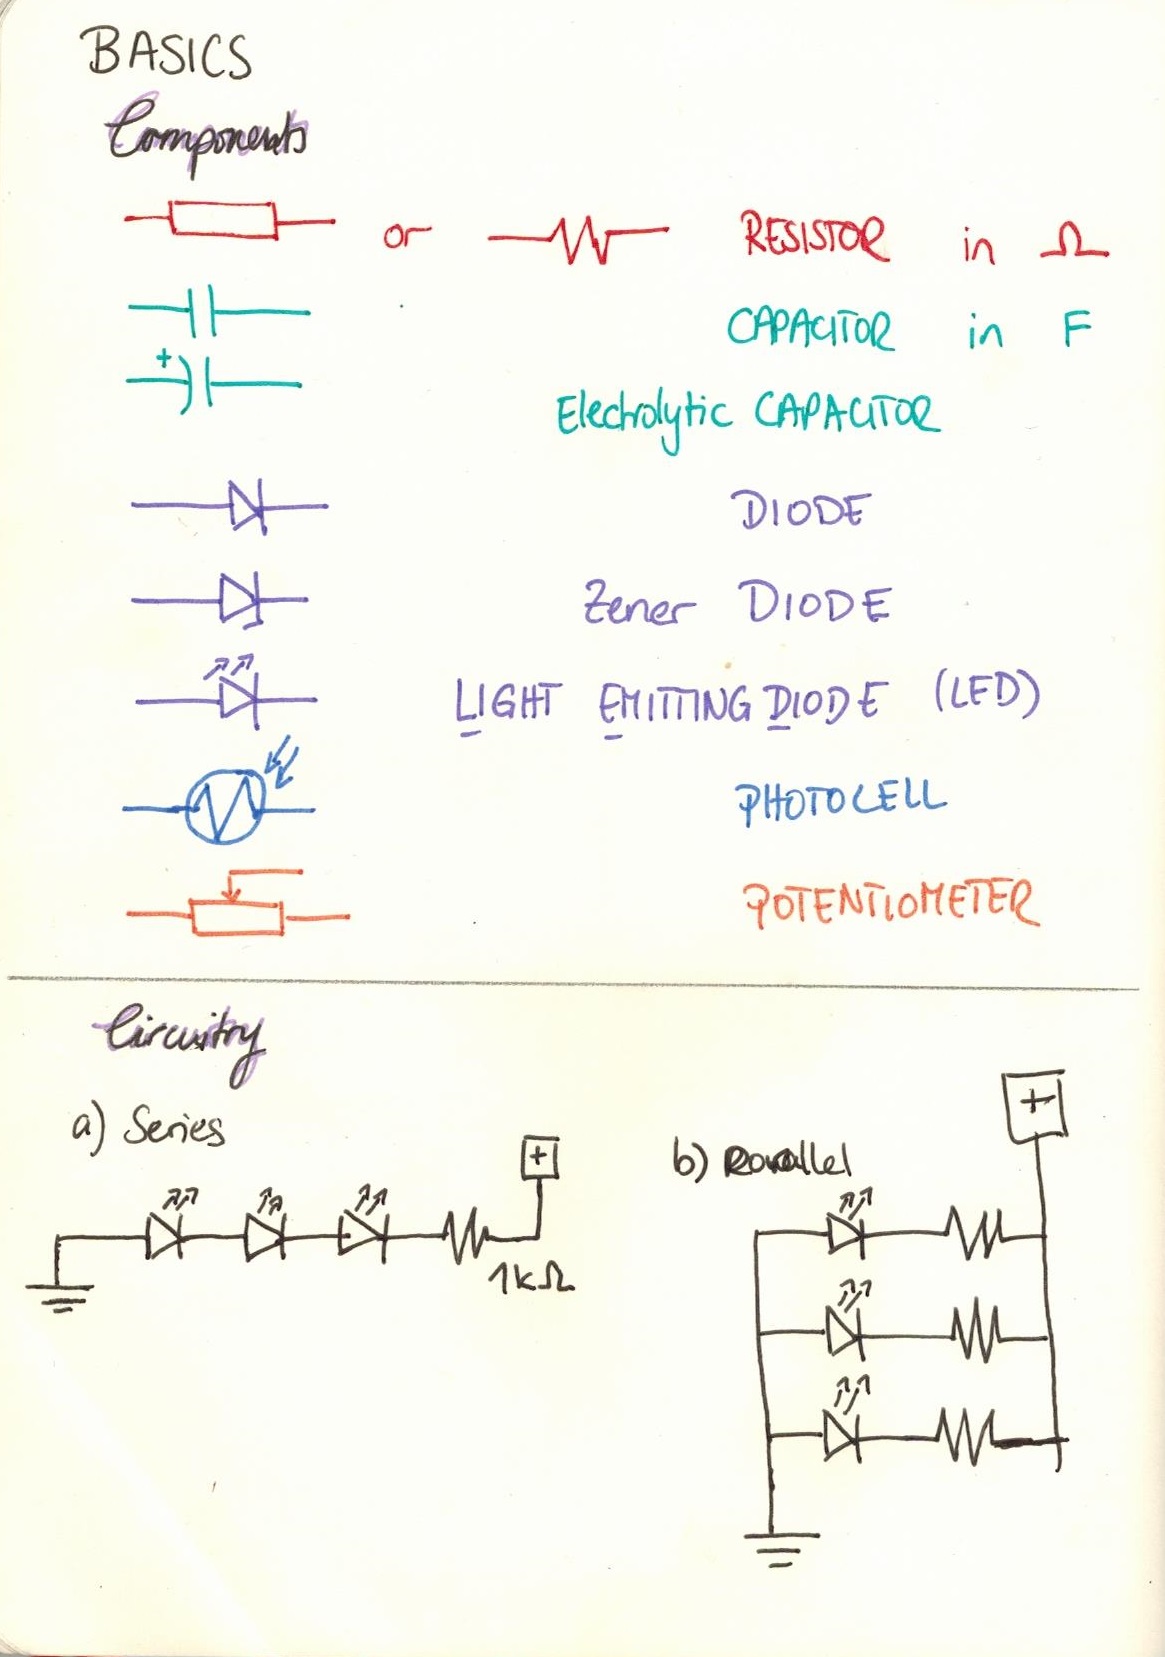 BASICS
Components
or RESISTOR in Ω
CAPACITOR in F
+
Electrolytic CAPACITOR
DIODE
Zener DIODE
LIGHT EMITTING DIODE (LED)
PHOTOCELL
POTENTIOMETER
Circuitry
a) Series
+
1kΩ
+
b) Parallel